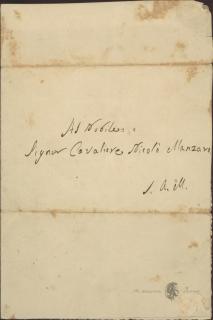 Al Nobile
Signor Cavaliere Nicolò Manzari
S. A. M.